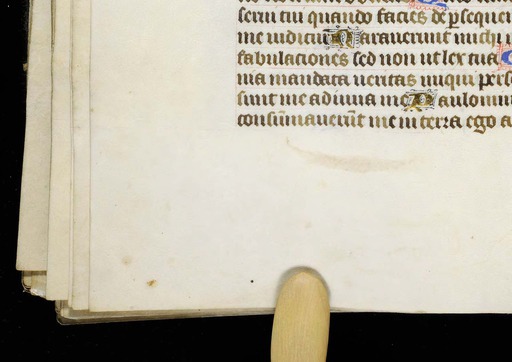 serui tui quando facies de ꝑsequen
me iudiciũ Narauerunt michi i
fabulaciones sed non ut lex tua
tua mandata ueritas iniqui pers
sunt me adiuua me Paulominu
consũmauerũt me in terra ego a